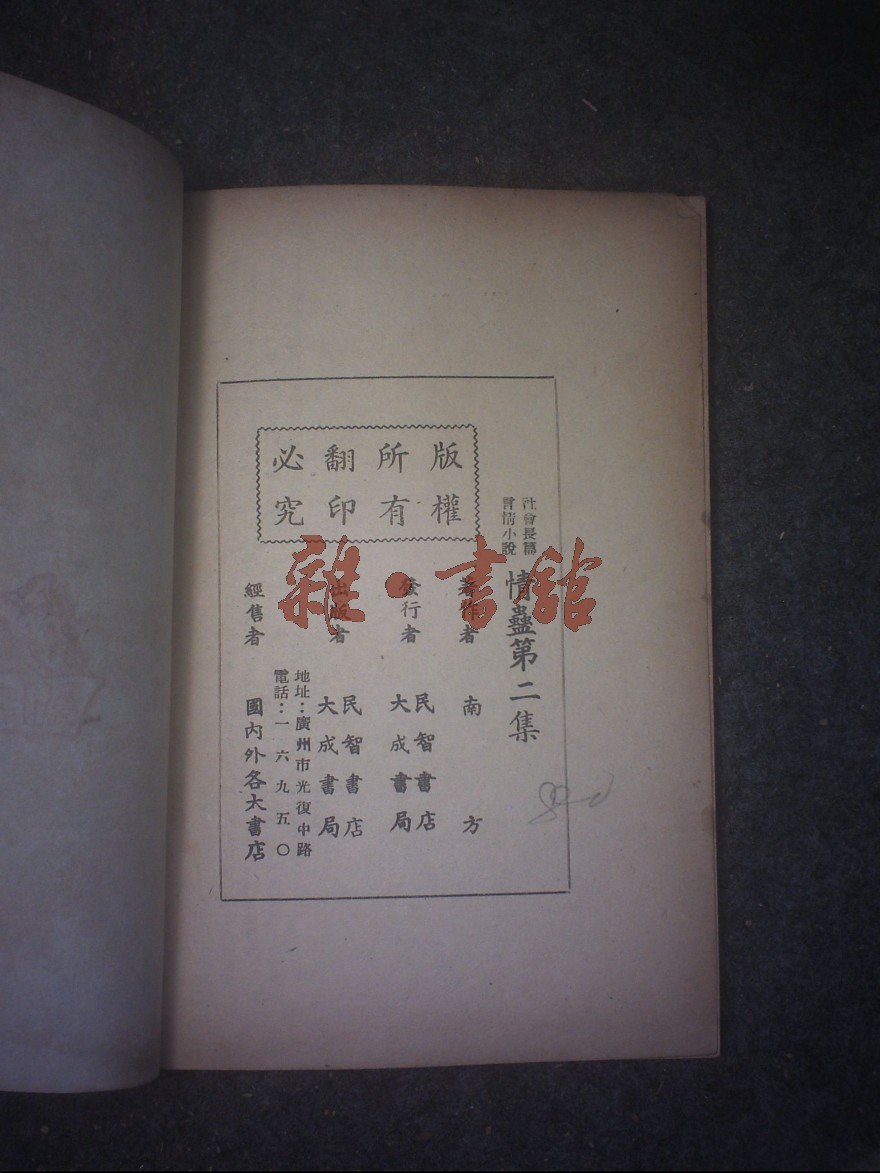 版權
所有
翻印
必究
社會長篇
言情小說
情蠱第二集
著作者 南方
發行者 民智書店
大成書局
出版者 民智書店
大成書局
地址：廣州市光復中路
電話：一六九五〇
經售者 國內外各大書店
雜·書館